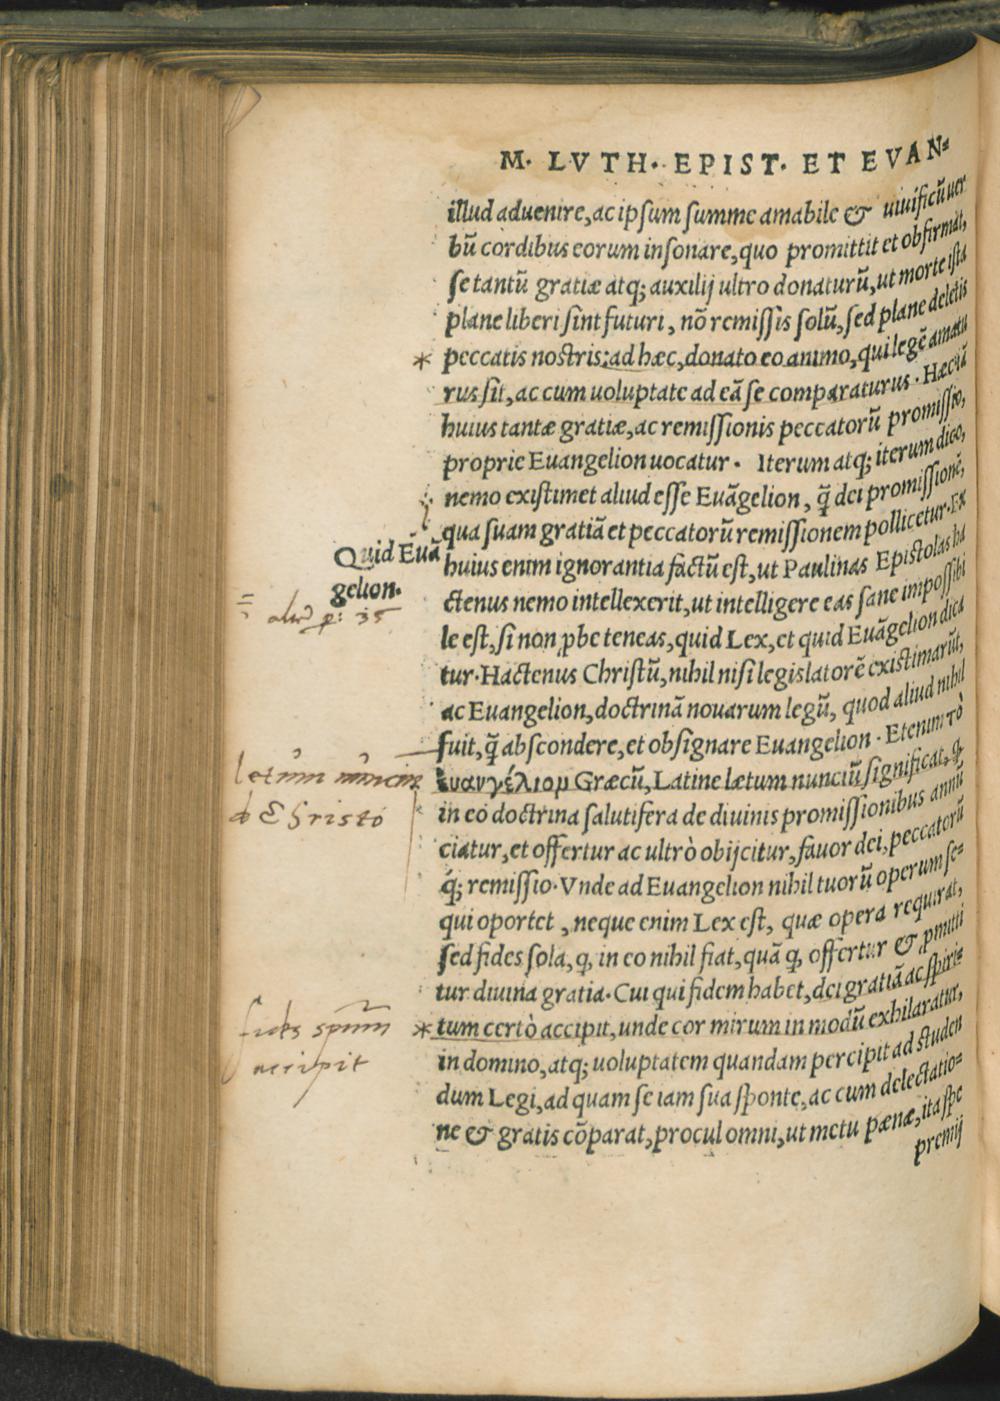 M. LVTH. EPIST. ET EVAN⸗
illud aduenire, ac ipsum summe amabile & uiuificũ uer
bũ cordibus eorum insonare, quo promittit et obfirmat,
se tantũ gratiæ atq; auxilij ultro donaturũ, ut morte ista
plane liberi sint futuri, nõ remissis solũ, sed plane deletis
* peccatis nostris: ad hæc, donato eo animo, qui legẽ amatu
rus sit, ac cum uoluptate ad eã se comparaturus. Hæc iã
huius tantæ gratiæ, ac remissionis peccatorũ promissio,
proprie Euangelion uocatur. Iterum atq; iterum dico,
nemo existimet aliud esse Euãgelion, q̃ dei promissionẽ,
qua suam gratiã et peccatorũ remissionem pollicetur. Ex
Quid Euã
gelion.
p: 35
huius enim ignorantia factũ est, ut Paulinas Epistolas ha
ctenus nemo intellexerit, ut intelligere eas sane impossibi
le est, si non ꝓbe teneas, quid Lex, et quid Euãgelion dica
tur. Hactenus Christũ, nihil nisi legislatorẽ existimarũt,
ac Euangelion, doctrinã nouarum legũ, quod aliud nihil
fuit, q̃ abscondere, et obsignare Euangelion. Etenim τὸ
letum nuncium
de Christo
ἐυαγγέλιομ Græcũ, Latine lætum nunciũ significat, ꝙ
in eo doctrina salutifera de diuinis promissionibus annũ
ciatur, et offertur ac ultrò obijcitur, fauor dei, peccatorũ
q́; remissio. Vnde ad Euangelion nihil tuorũ operum se⸗
qui oportet, neque enim Lex est, quæ opera requirat,
sed fides sola, ꝙ in eo nihil fiat, quã ꝙ offertur & ꝓmitti
tur diuina gratia. Cui qui fidem habet, dei gratiã ac spiri⸗
fides spiritum
accipit
* tum certò accipit, unde cor mirum in modũ exhilaratur,
in domino, atq; uoluptatem quandam percipit ad studen
dum Legi, ad quam se iam sua sponte, ac cum delectatio⸗
ne & gratis cõparat, procul omni, ut metu pœnæ, ita spe
premij